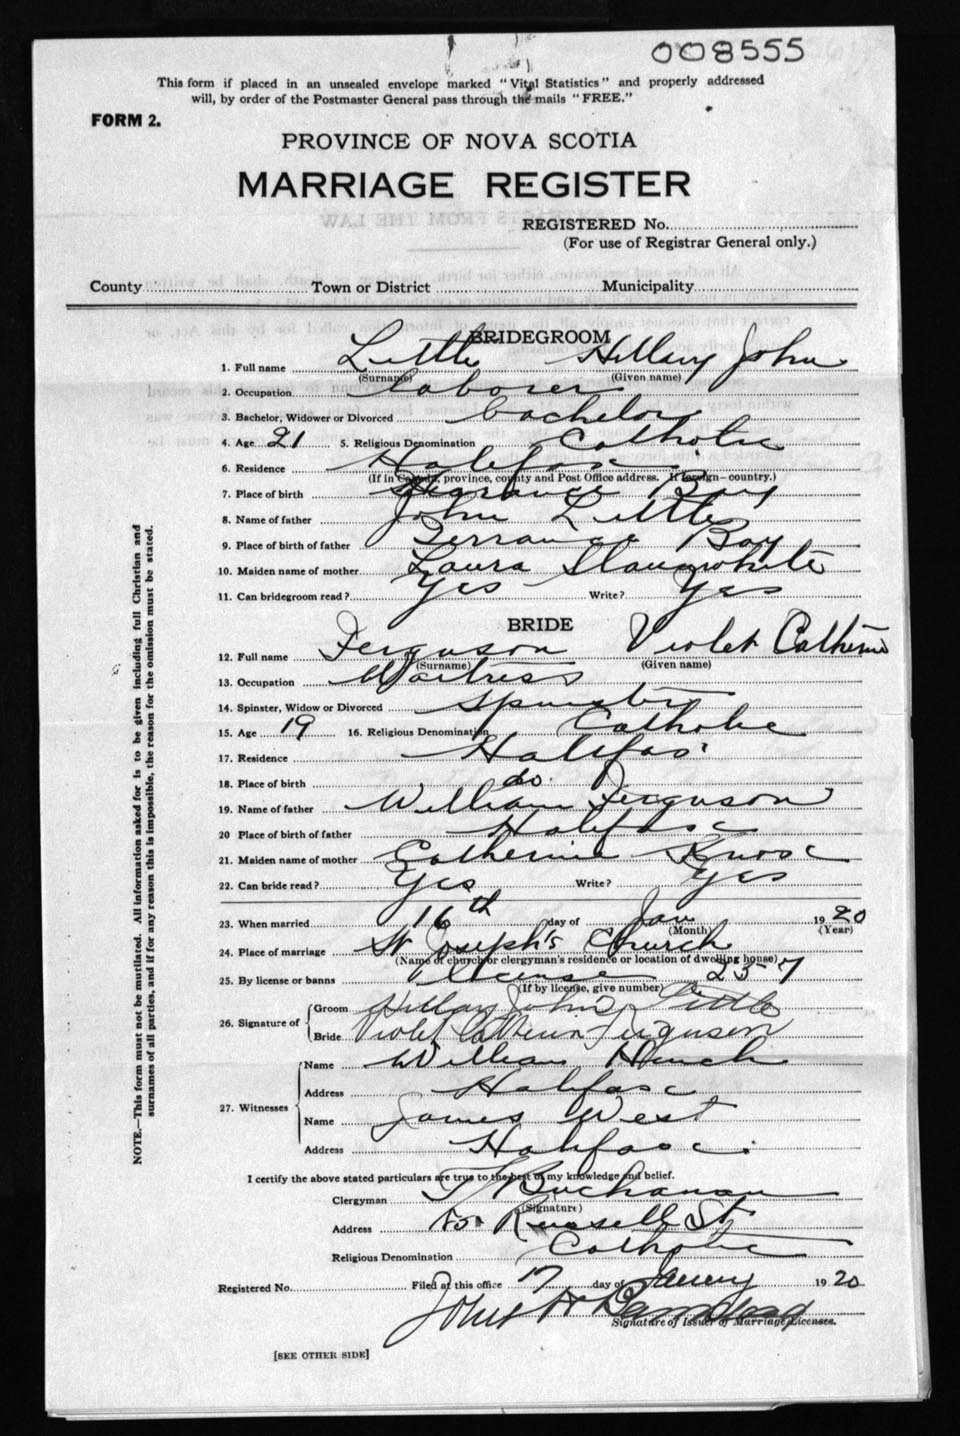 008555
This form if placed in an unsealed envelope marked "Vital Statistics" and properly addressed
will, by order of the Postmaster General pass through the mails "FREE."
FORM 2.
PROVINCE OF NOVA SCOTIA
MARRIAGE REGISTER
REGISTERED No.
(For use of Registrar General only.)
County Town or District Municipality
BRIDEGROOM
1. Full name Little Hillary John
(Surname) (Given name)
2. Occupation Laborer
3. Bachelor, Widower or Divorced bachelor
4. Age 21 5. Religious Denomination Catholic
6. Residence Halifax
(If in Canada, province, county and Post Office address. If foreign—country.)
7. Place of birth Bay
8. Name of father John Little
9. Place of birth of father Terrance Bay
10. Maiden name of mother Laura Slaunwhite
11. Can bridegroom read? Yes Write? Yes
BRIDE
12. Full name Ferguson Violet Catherine
(Surname) (Given name)
13. Occupation Waitress
14. Spinster, Widow or Divorced Spinster
15. Age 19 16. Religious Denomination Catholic
17. Residence Halifax
18. Place of birth do.
19. Name of father William Ferguson
20 Place of birth of father Halifax
21. Maiden name of mother Catherine Knox
22. Can bride read? Yes Write? Yes
23. When married 16th day of Jan 1920
(Month) (Year)
24. Place of marriage St Joseph's Church
(Name of church or clergyman's residence or location of dwelling house)
25. By license or banns License 257
(If by license, give number)
26. Signature of
Groom Hillary John Little
Bride Violet Catherin Ferguson
27. Witnesses
Name William Hinch
Address Halifax
Name James West
Address Halifax
I certify the above stated particulars are true to the best of my knowledge and belief.
Clergyman Buchanan
(Signature)
Address Russell St
Religious Denomination Catholic
Registered No. Filed at this office 17 day of January 1920
John
Signature of Issuer of Marriage Licenses.
[SEE OTHER SIDE]
NOTE.—This form must not be mutilated. All information asked for is to be given including full Christian and
surnames of all parties, and if for any reason this is impossible, the reason for the omission must be stated.